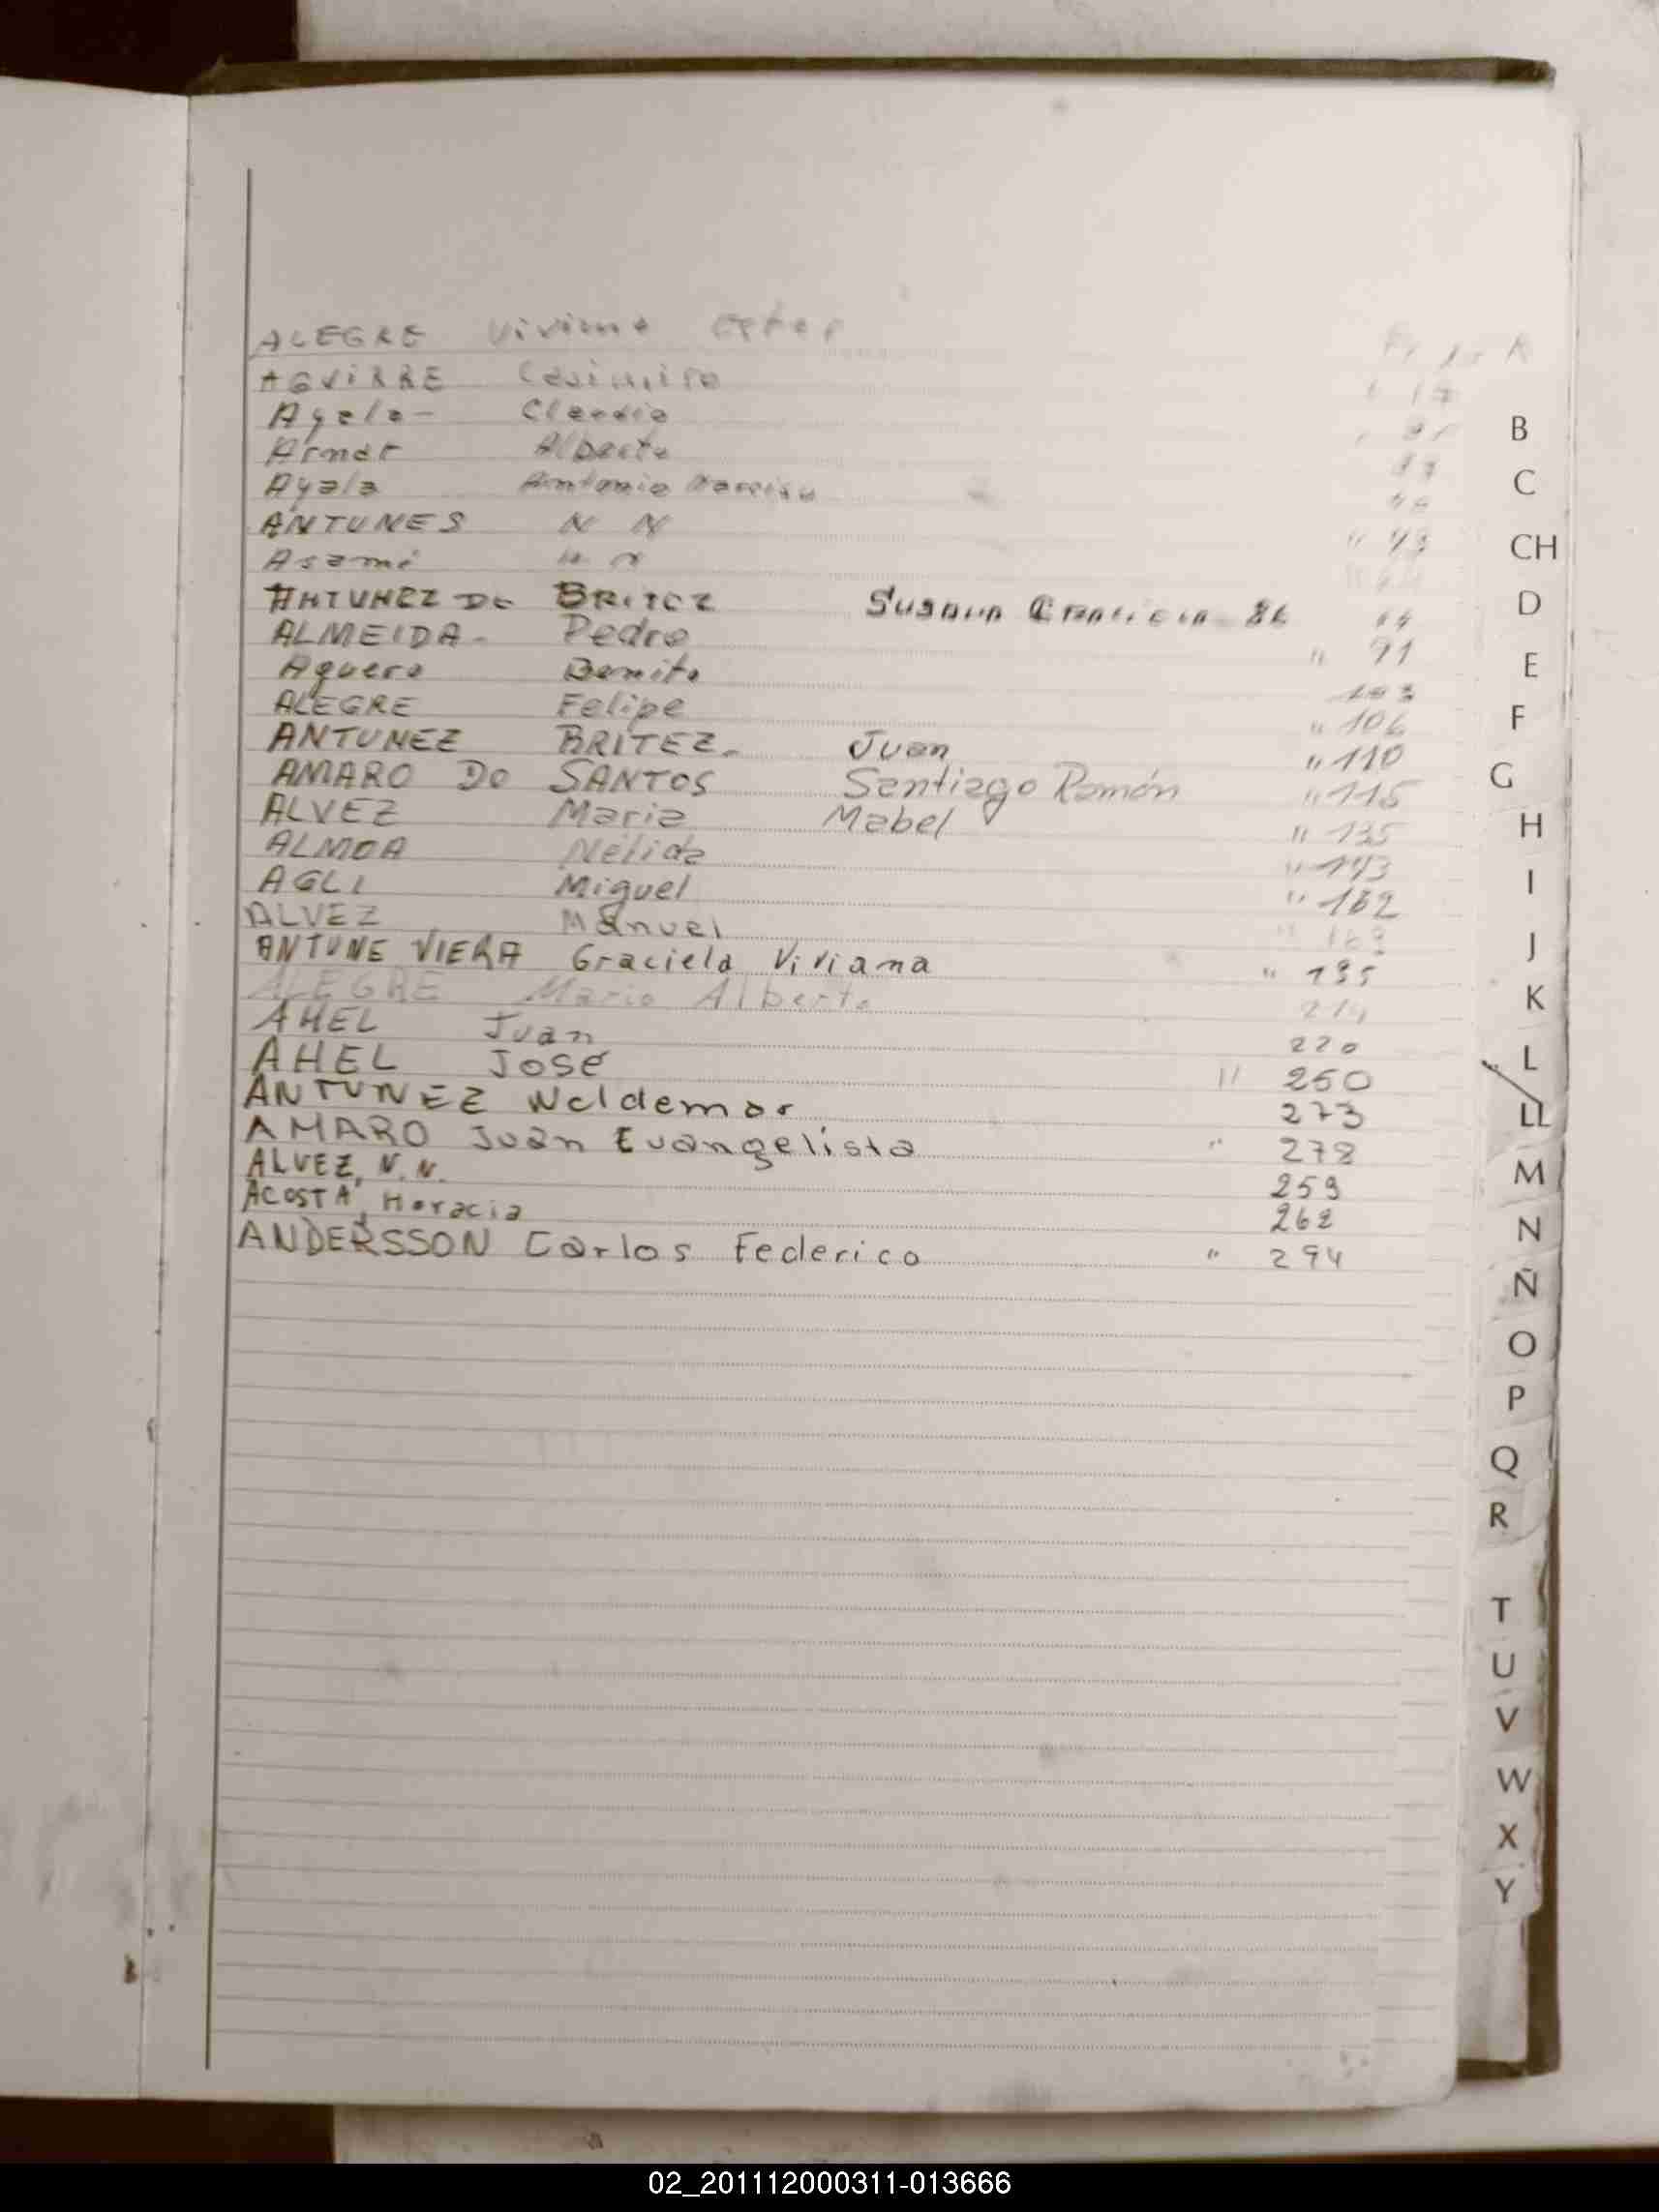 ALEGRE Viviana Ester
AGUIRRE Casimiro 17
Ayala - Claudia
Arndt Alberto 37
Ayala Antonio Narciso
ANTUNES N N " 43
Asamé N N
ANTUNEZ DE BRITEZ Susana Graciela 86
ALMEIDA - Pedro " 91
Aguero Benito 103
ALEGRE Felipe " 106
ANTUNEZ BRITEZ - Juan " 110
AMARO DO SANTOS Santiago Ramón " 115
ALVEZ Maria Mabel " 135
ALMOA Nélida " 143
AGLI Miguel " 162
ALVEZ Manuel " 169
ANTUNE VIERA Graciela Viviana " 195
ALEGRE Mario Alberto 214
AHEL Juan 220
AHEL José " 250
ANTUNEZ Weldemar 273
AMARO Juan Evangelista " 278
ALVEZ, N.N. 259
ACOSTA, Horacia 262
ANDERSSON Carlos Federico " 294
B
C
CH
D
E
F
G
H
I
J
K
L
LL
M
N
Ñ
O
P
Q
R
T
U
V
W
X
Y
02_201112000311-013666